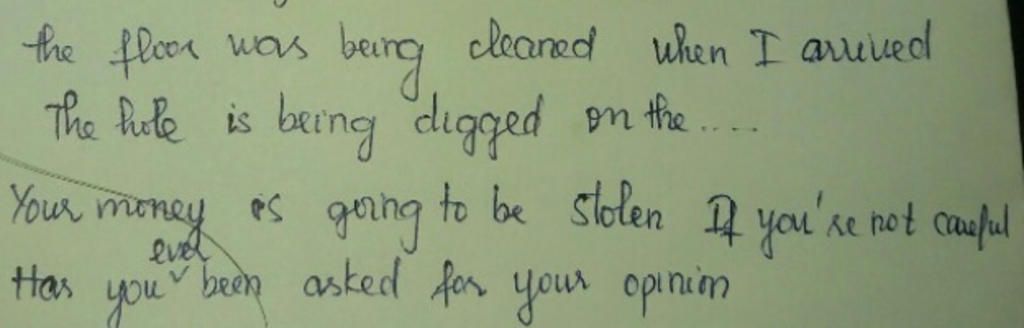 the floor was being cleaned when I arrived
The hole is being digged on the .....
Your money is going to be stolen If you're not careful
Has you ever been asked for your opinion